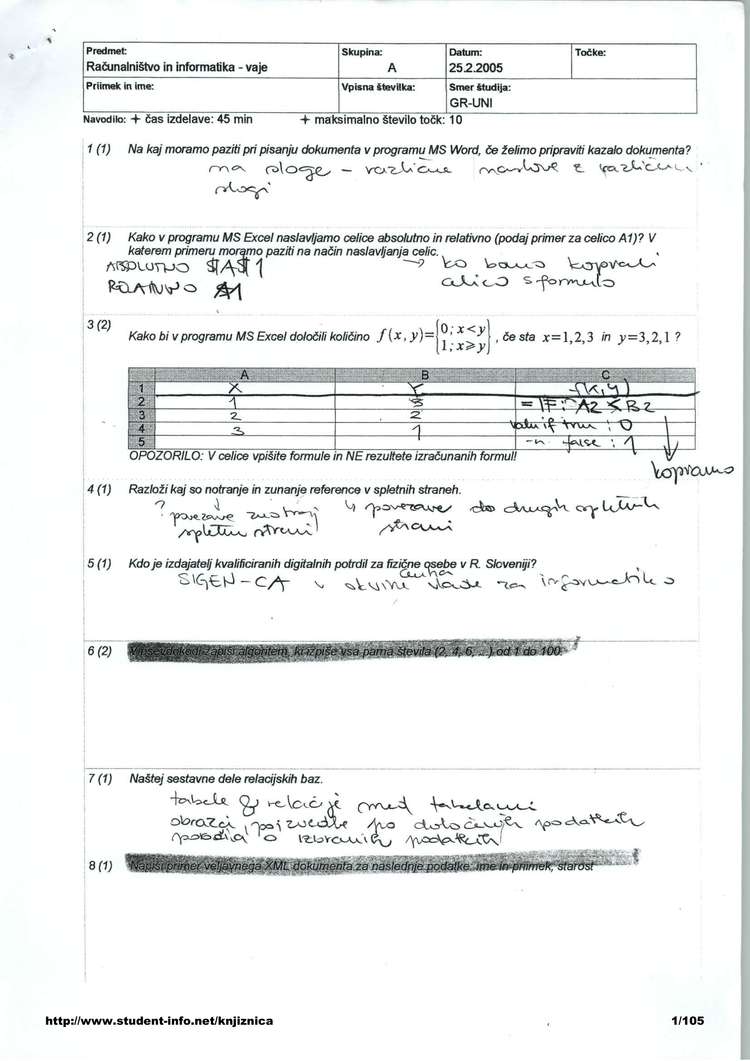 Predmet:
Računalništvo in informatika - vaje
Skupina:
A
Datum:
25.2.2005
Točke:
Priimek in ime:
Vpisna številka:
Smer študija:
GR-UNI
Navodilo: + čas izdelave: 45 min + maksimalno število točk: 10
1 (1) Na kaj moramo paziti pri pisanju dokumenta v programu MS Word, če želimo pripraviti kazalo dokumenta?
na sloge – različne naslove z različnimi
slogi
2 (1) Kako v programu MS Excel naslavljamo celice absolutno in relativno (podaj primer za celico A1)? V
katerem primeru moramo paziti na način naslavljanja celic.
ABSOLUTNO $A$1 → ko bomo kopirali
RELATIVNO A1 celico s formulo
3 (2) Kako bi v programu MS Excel določili količino f(x,y)={0; x<y
1; x⩾y}, če sta x=1,2,3 in y=3,2,1 ?
A B C
1 X Y f(x,y)
2 1 3 = IF: A2 < B2
3 2 2
4 3 1 value if true : 0
5 -||- false : 1
OPOZORILO: V celice vpišite formule in NE rezultete izračunanih formul!
kopiramo
4 (1) Razloži kaj so notranje in zunanje reference v spletnih straneh.
? povezave znotraj ↳ povezave do drugih spletnih
spletnih strani strani
5 (1) Kdo je izdajatelj kvalificiranih digitalnih potrdil za fizične osebe v R. Sloveniji?
SIGEN-CA v okviru centra vlade za informatiko
6 (2) V psevdokodi zapiši algoritem, ki izpiše vsa parna števila (2, 4, 6, ...) od 1 do 100.
7 (1) Naštej sestavne dele relacijskih baz.
tabele & relacije med tabelami
obrazci, poizvedbe po določenih podatkih
poročila o izbranih podatkih
8 (1) Napiši primer veljavnega XML dokumenta za naslednje podatke: ime in priimek, starost
http://www.student-info.net/knjiznica
1/105